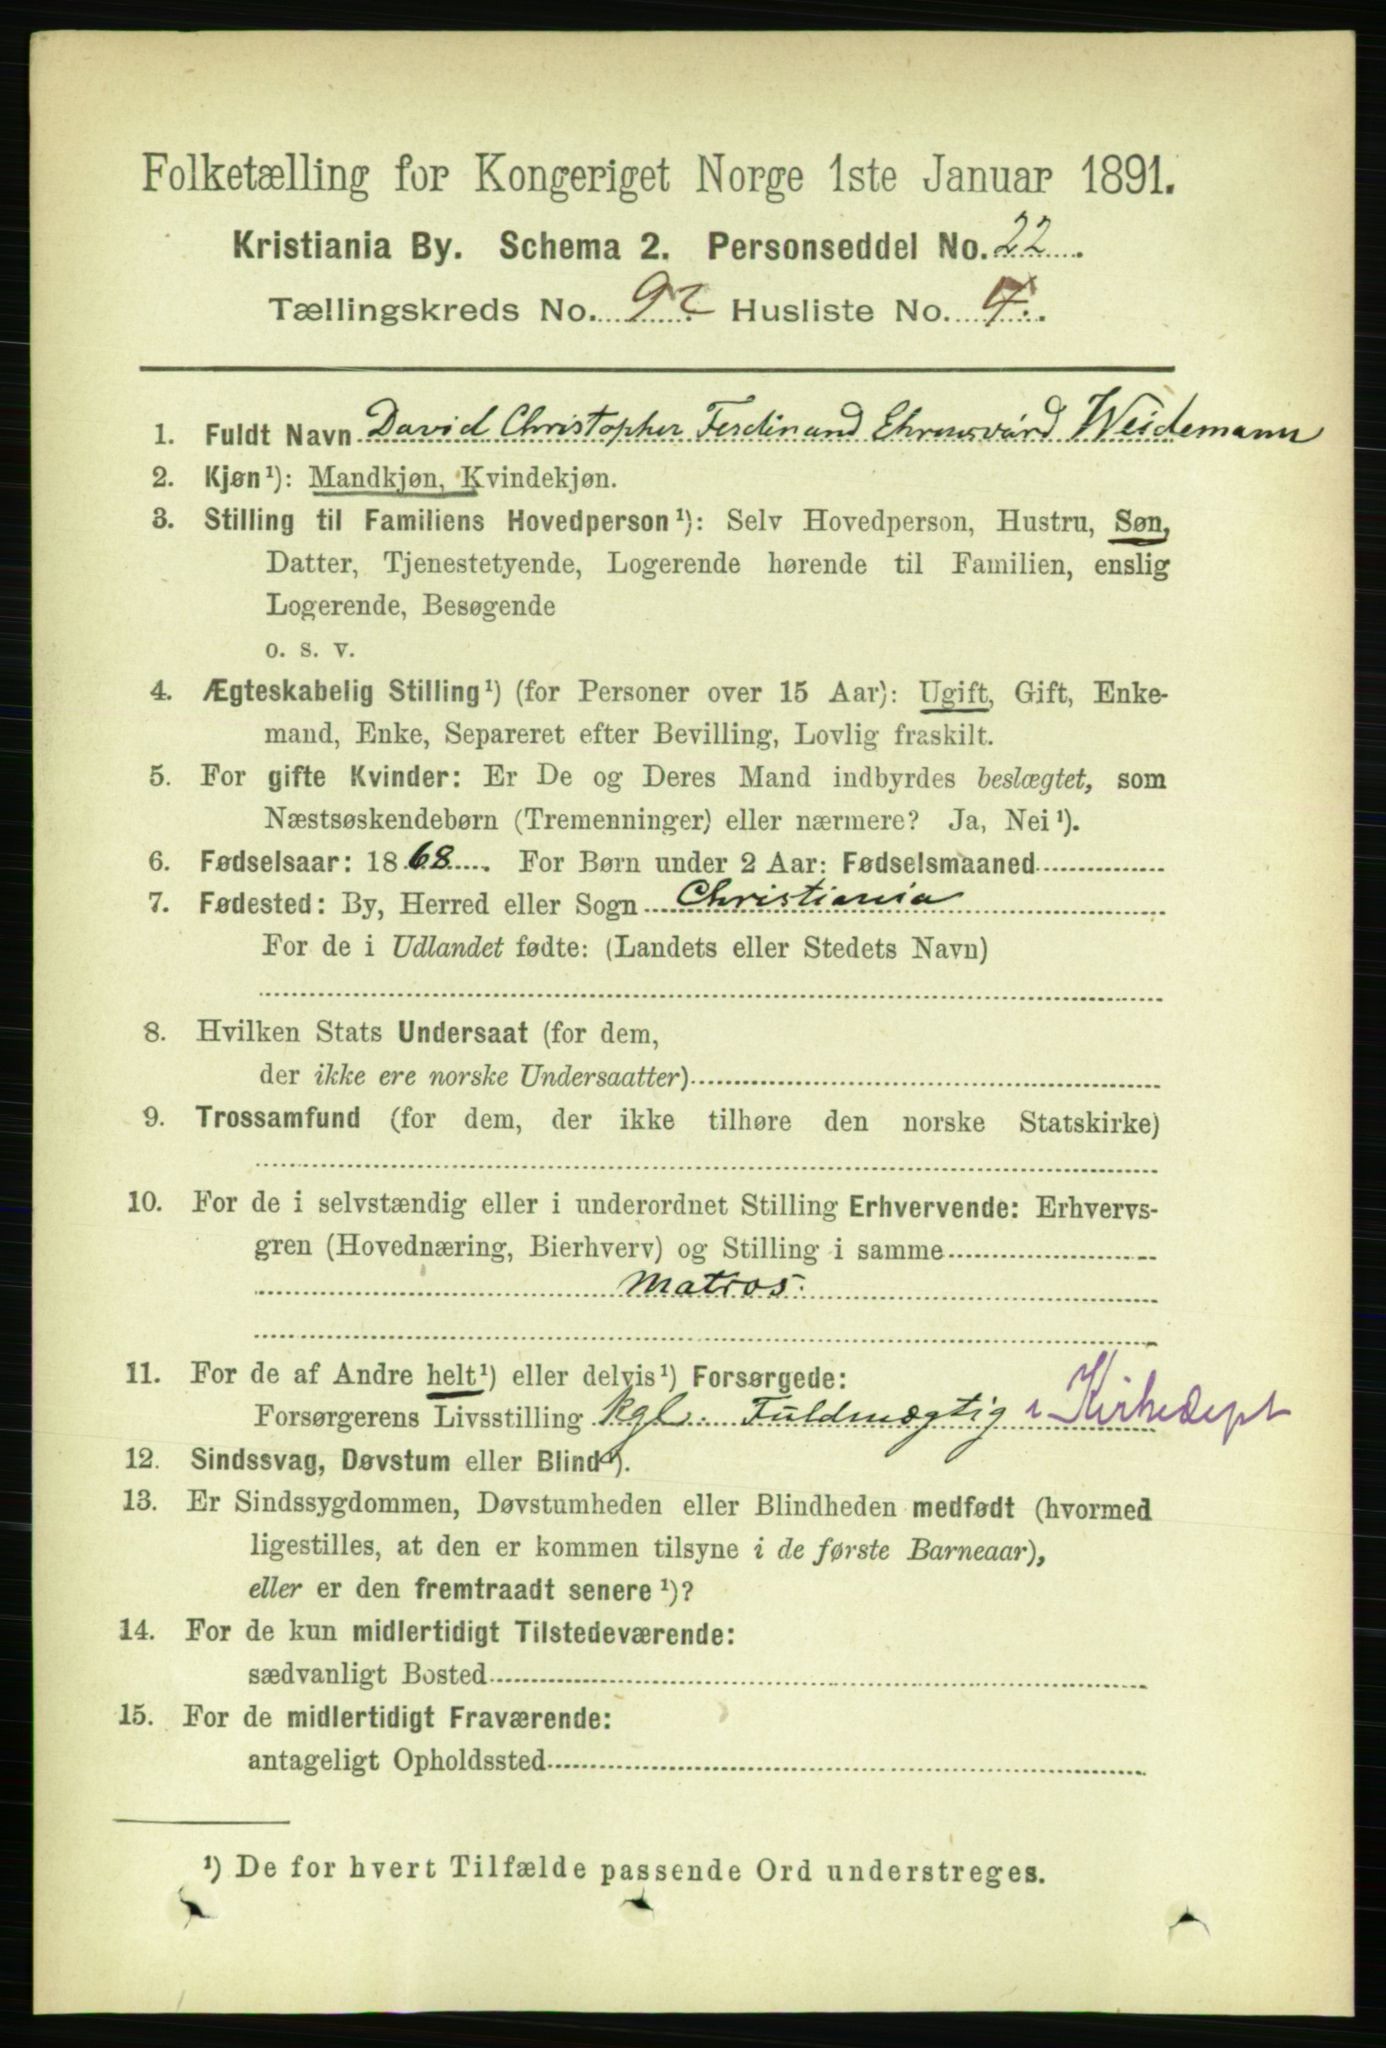 Folketælling for Kongeriget Norge 1ste Januar 1891.
Kristiania By. Schema 2. Personseddel No. 22.
Tællingskreds No. 92 Husliste No. 4.
1. Fuldt Navn David Christopher Ferdinand Ehrensvärd Weidemann
2. Kjøn¹): Mandkjøn, Kvindekjøn.
3. Stilling til Familiens Hovedperson¹): Selv Hovedperson, Hustru, Søn,
Datter, Tjenestetyende, Logerende hørende til Familien, enslig
Logerende, Besøgende
o. s. v.
4. Ægteskabelig Stilling¹) (for Personer over 15 Aar): Ugift, Gift, Enke-
mand, Enke, Separeret efter Bevilling, Lovlig fraskilt.
5. For gifte Kvinder: Er De og Deres Mand indbyrdes beslægtet, som
Næstsøskendebørn (Tremenninger) eller nærmere? Ja, Nei¹).
6. Fødselsaar: 1868. For Børn under 2 Aar: Fødselsmaaned
7. Fødested: By, Herred eller Sogn Christiania
For de i Udlandet fødte: (Landets eller Stedets Navn)
8. Hvilken Stats Undersaat (for dem,
der ikke ere norske Undersaatter)
9. Trossamfund (for dem, der ikke tilhøre den norske Statskirke)
10. For de i selvstændig eller i underordnet Stilling Erhvervende: Erhvervs-
gren (Hovednæring, Bierhverv) og Stilling i samme
Matros.
11. For de af Andre helt¹) eller delvis¹) Forsørgede:
Forsørgerens Livsstilling kgl. Fuldmægtig i Kirkedept
12. Sindssvag, Døvstum eller Blind¹).
13. Er Sindssygdommen, Døvstumheden eller Blindheden medfødt (hvormed
ligestilles, at den er kommen tilsyne i de første Barneaar),
eller er den fremtraadt senere¹)?
14. For de kun midlertidigt Tilstedeværende:
sædvanligt Bosted
15. For de midlertidigt Fraværende:
antageligt Opholdssted
¹) De for hvert Tilfælde passende Ord understreges.